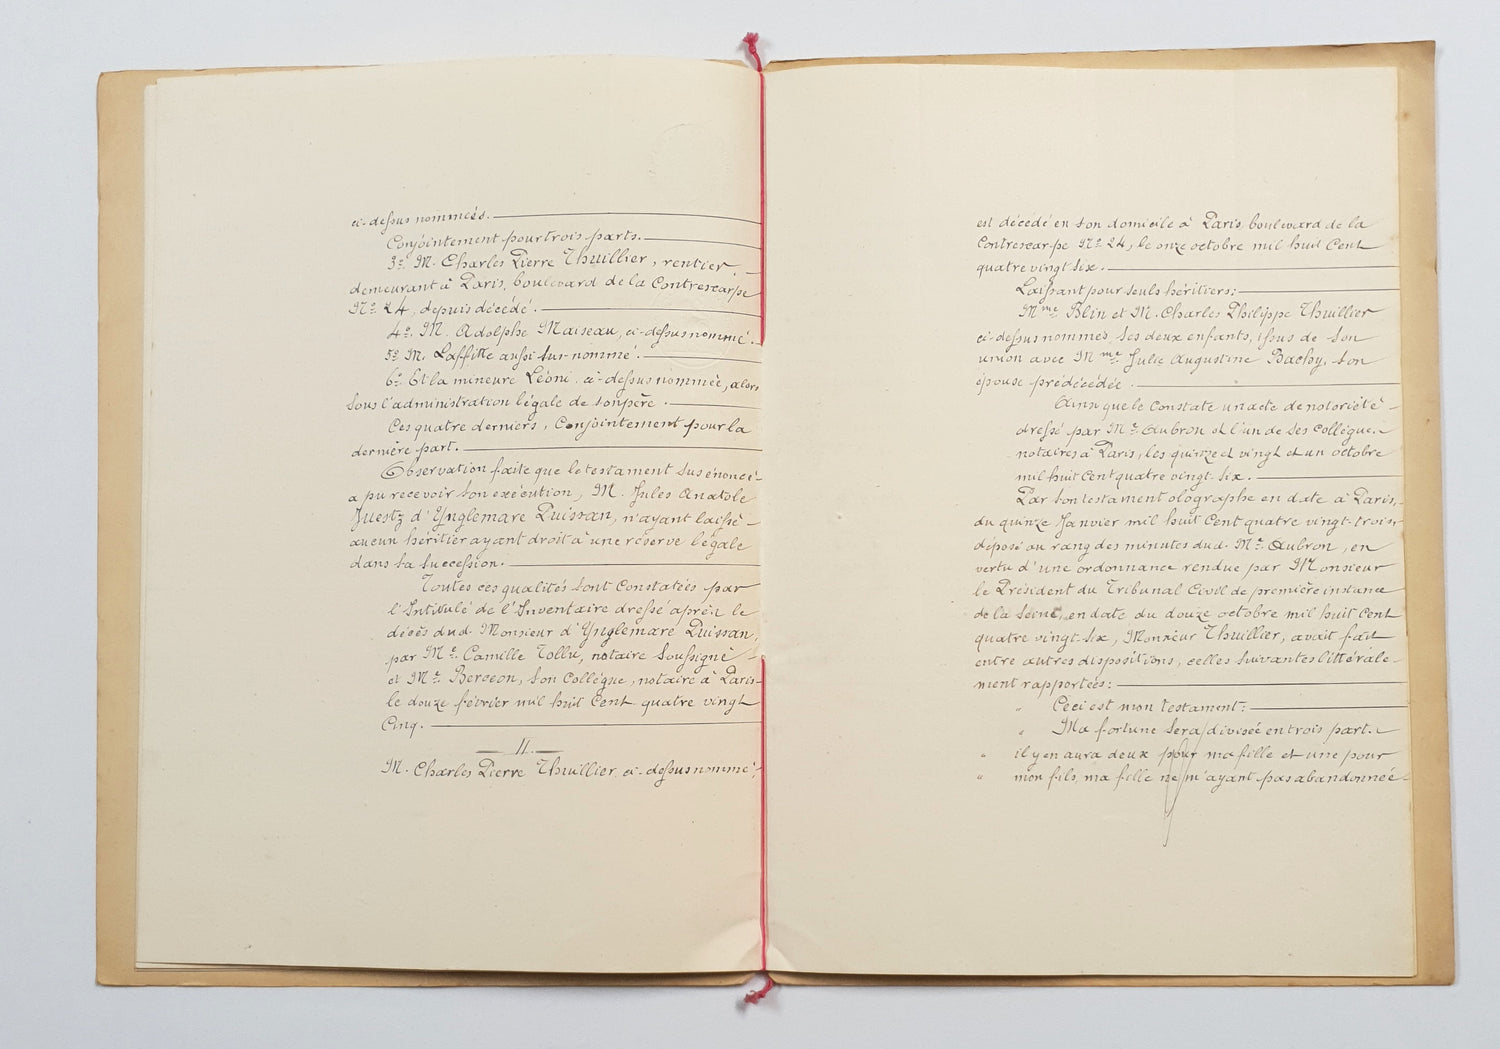 ci-dessus nommées.
Conjointement pour trois parts.
3º M. Charles Pierre Thuillier, rentier,
demeurant à Paris, boulevard de la Contrescarpe
Nº 24, depuis décédé.
4º M. Adolphe Maiseau, ci-dessus nommé.
5º M. Laffitte aussi sus-nommé.
6º Et la mineure Léoni ci-dessus nommée, alors
sous l'administration légale de son père.
Ces quatre derniers, Conjointement pour la
dernière part.
Observation faite que le testament sus énoncé
a pu recevoir son exécution, M. Jules Anatole
d'Ynglemare Puissan, n'ayant laissé
aucun héritier ayant droit à une réserve légale
dans sa succession.
Toutes ces qualités sont Constatées par
l'Intitulé de l'Inventaire dressé après le
décès dud. Monsieur d'Ynglemare Puissan,
par Mº Camille Tollu, notaire soussigné
et Mº Berceon, son Collègue, notaire à Paris
le douze février mil huit Cent quatre vingt
Cinq.
II.
M. Charles Pierre Thuillier, ci-dessus nommé,
est décédé en son domicile à Paris, boulevard de la
Contrescarpe Nº 24, le onze octobre mil huit Cent
quatre vingt six.
Laissant pour seuls héritiers:
Mme Blin et M. Charles Philippe Thuillier
ci-dessus nommés, ses deux enfants, issus de son
union avec Mme Julie Augustine Bachy, son
épouse prédécédée.
Ainsi que le Constate un acte de notoriété
dressé par Mº Aubron et l'un de ses Collègue.
notaires à Paris, les quinze et vingt et un octobre
mil huit Cent quatre vingt six.
Par son testament olographe en date à Paris,
du quinze Janvier mil huit Cent quatre vingt-trois
déposé au rang des minutes dud. Mº Aubron, en
vertu d'une ordonnance rendue par Monsieur
le Président du Tribunal Civil de première instance
de la Seine, en date du douze octobre mil huit Cent
quatre vingt six, Monsieur Thuillier, avait fait
entre autres dispositions, celles suivantes littérale-
ment rapportées:
" Ceci est mon testament:
" Ma fortune sera divisée en trois part.
" il y en aura deux pour ma fille et une pour
" mon fils, ma fille ne m'ayant pas abandonnée